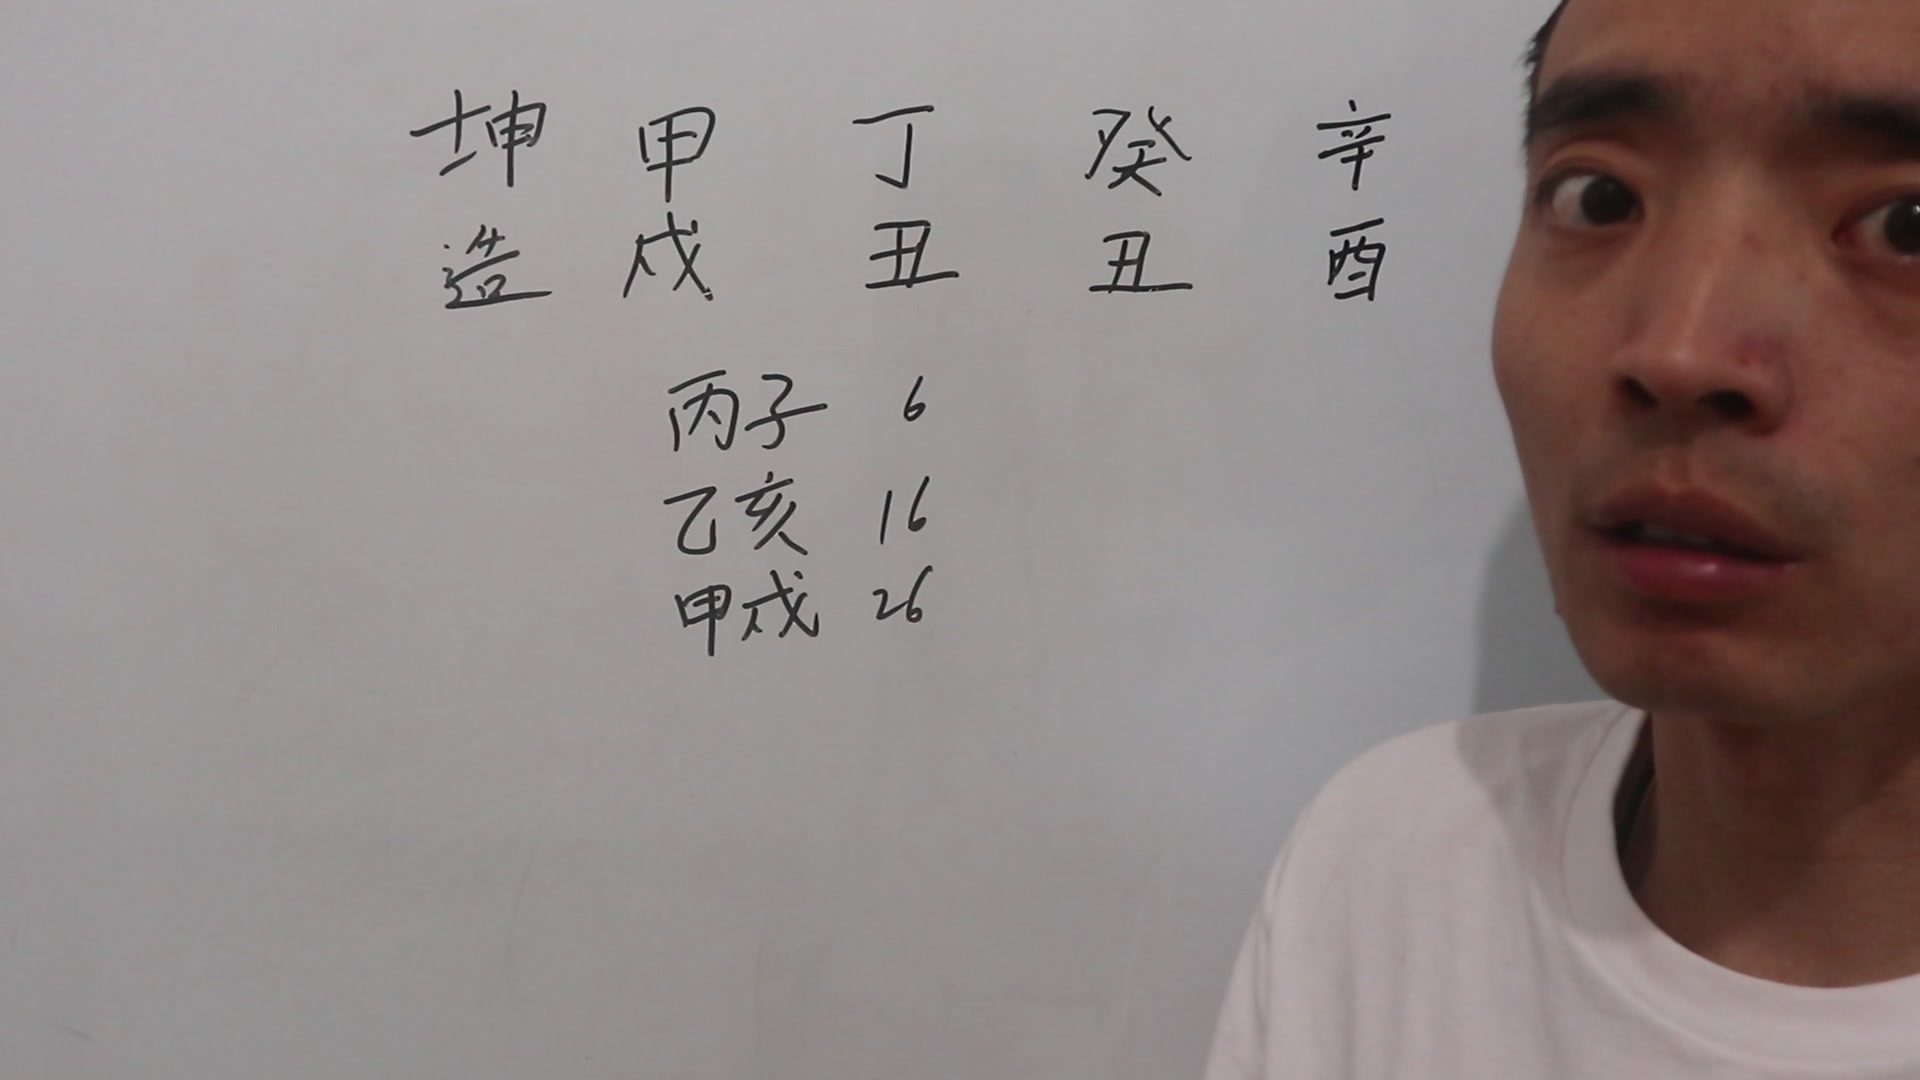 坤 甲 丁 癸 辛
造 戌 丑 丑 酉
丙子 6
乙亥 16
甲戌 26